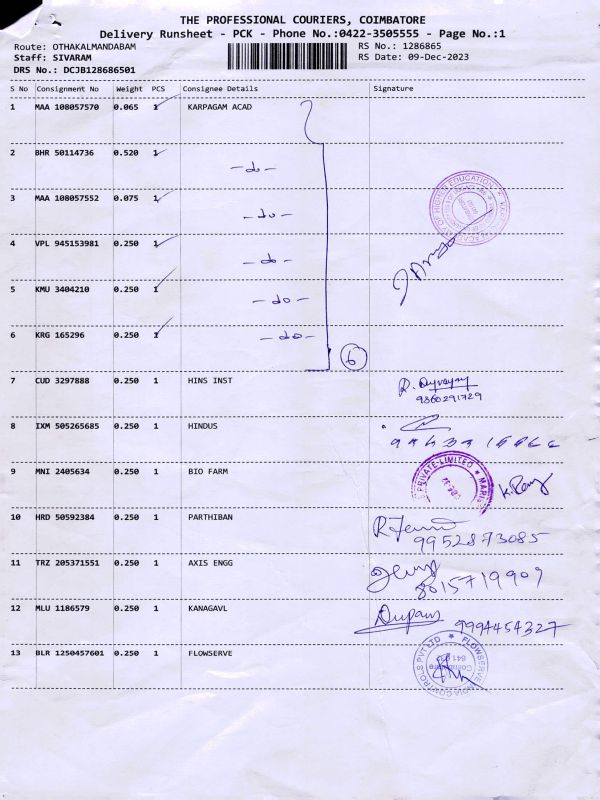 THE PROFESSIONAL COURIERS, COIMBATORE
Delivery Runsheet - PCK - Phone No.:0422-3505555 - Page No.:1
Route: OTHAKALMANDABAM
RS No.: 1286865
Staff: SIVARAM
RS Date: 09-Dec-2023
DRS No.: DCJB128686501
S No Consignment No Weight PCS Consignee Details Signature
1 MAA 108057570 0.065 1 KARPAGAM ACAD
2 BHR 50114736 0.520 1 -do-
3 MAA 108057552 0.075 1 -do-
4 VPL 945153981 0.250 1 -do-
5 KMU 3404210 0.250 1 -do-
6 KRG 165296 0.250 1 -do-
6
7 CUD 3297888 0.250 1 HINS INST
9360291729
8 IXM 505265685 0.250 1 HINDUS
9 MNI 2405634 0.250 1 BIO FARM
PRIVATE LIMITED
10 HRD 50592384 0.250 1 PARTHIBAN
9952873085
11 TRZ 205371551 0.250 1 AXIS ENGG
8015719909
12 MLU 1186579 0.250 1 KANAGAVL
9994454327
13 BLR 1250457601 0.250 1 FLOWSERVE
FLOWSERVE INDIA CONTROLS PVT LTD